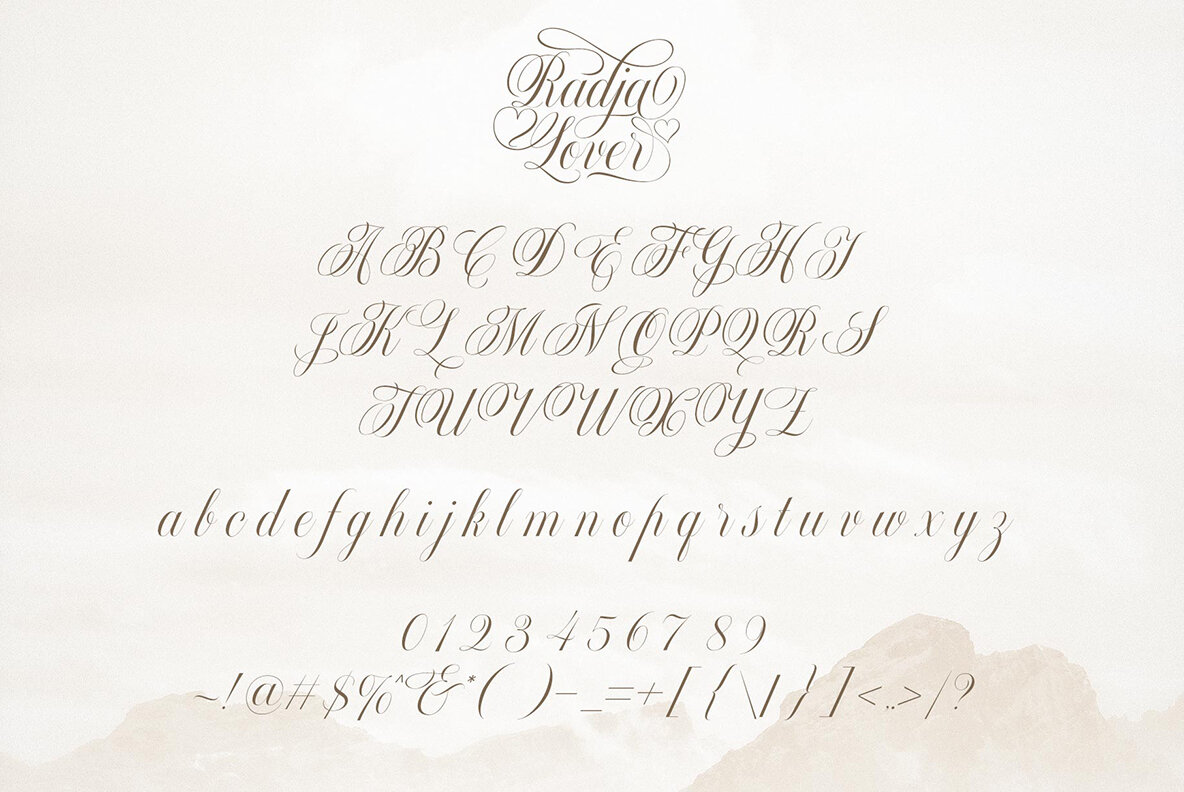 Radja
Lover
A B C D E F G H I
J K L M N O P Q R S
T U V W X Y Z
a b c d e f g h i j k l m n o p q r s t u v w x y z
0 1 2 3 4 5 6 7 8 9
~ ! @ # $ % ^ & * ( ) – _ = + [ { \ | } ] < . . > / ?